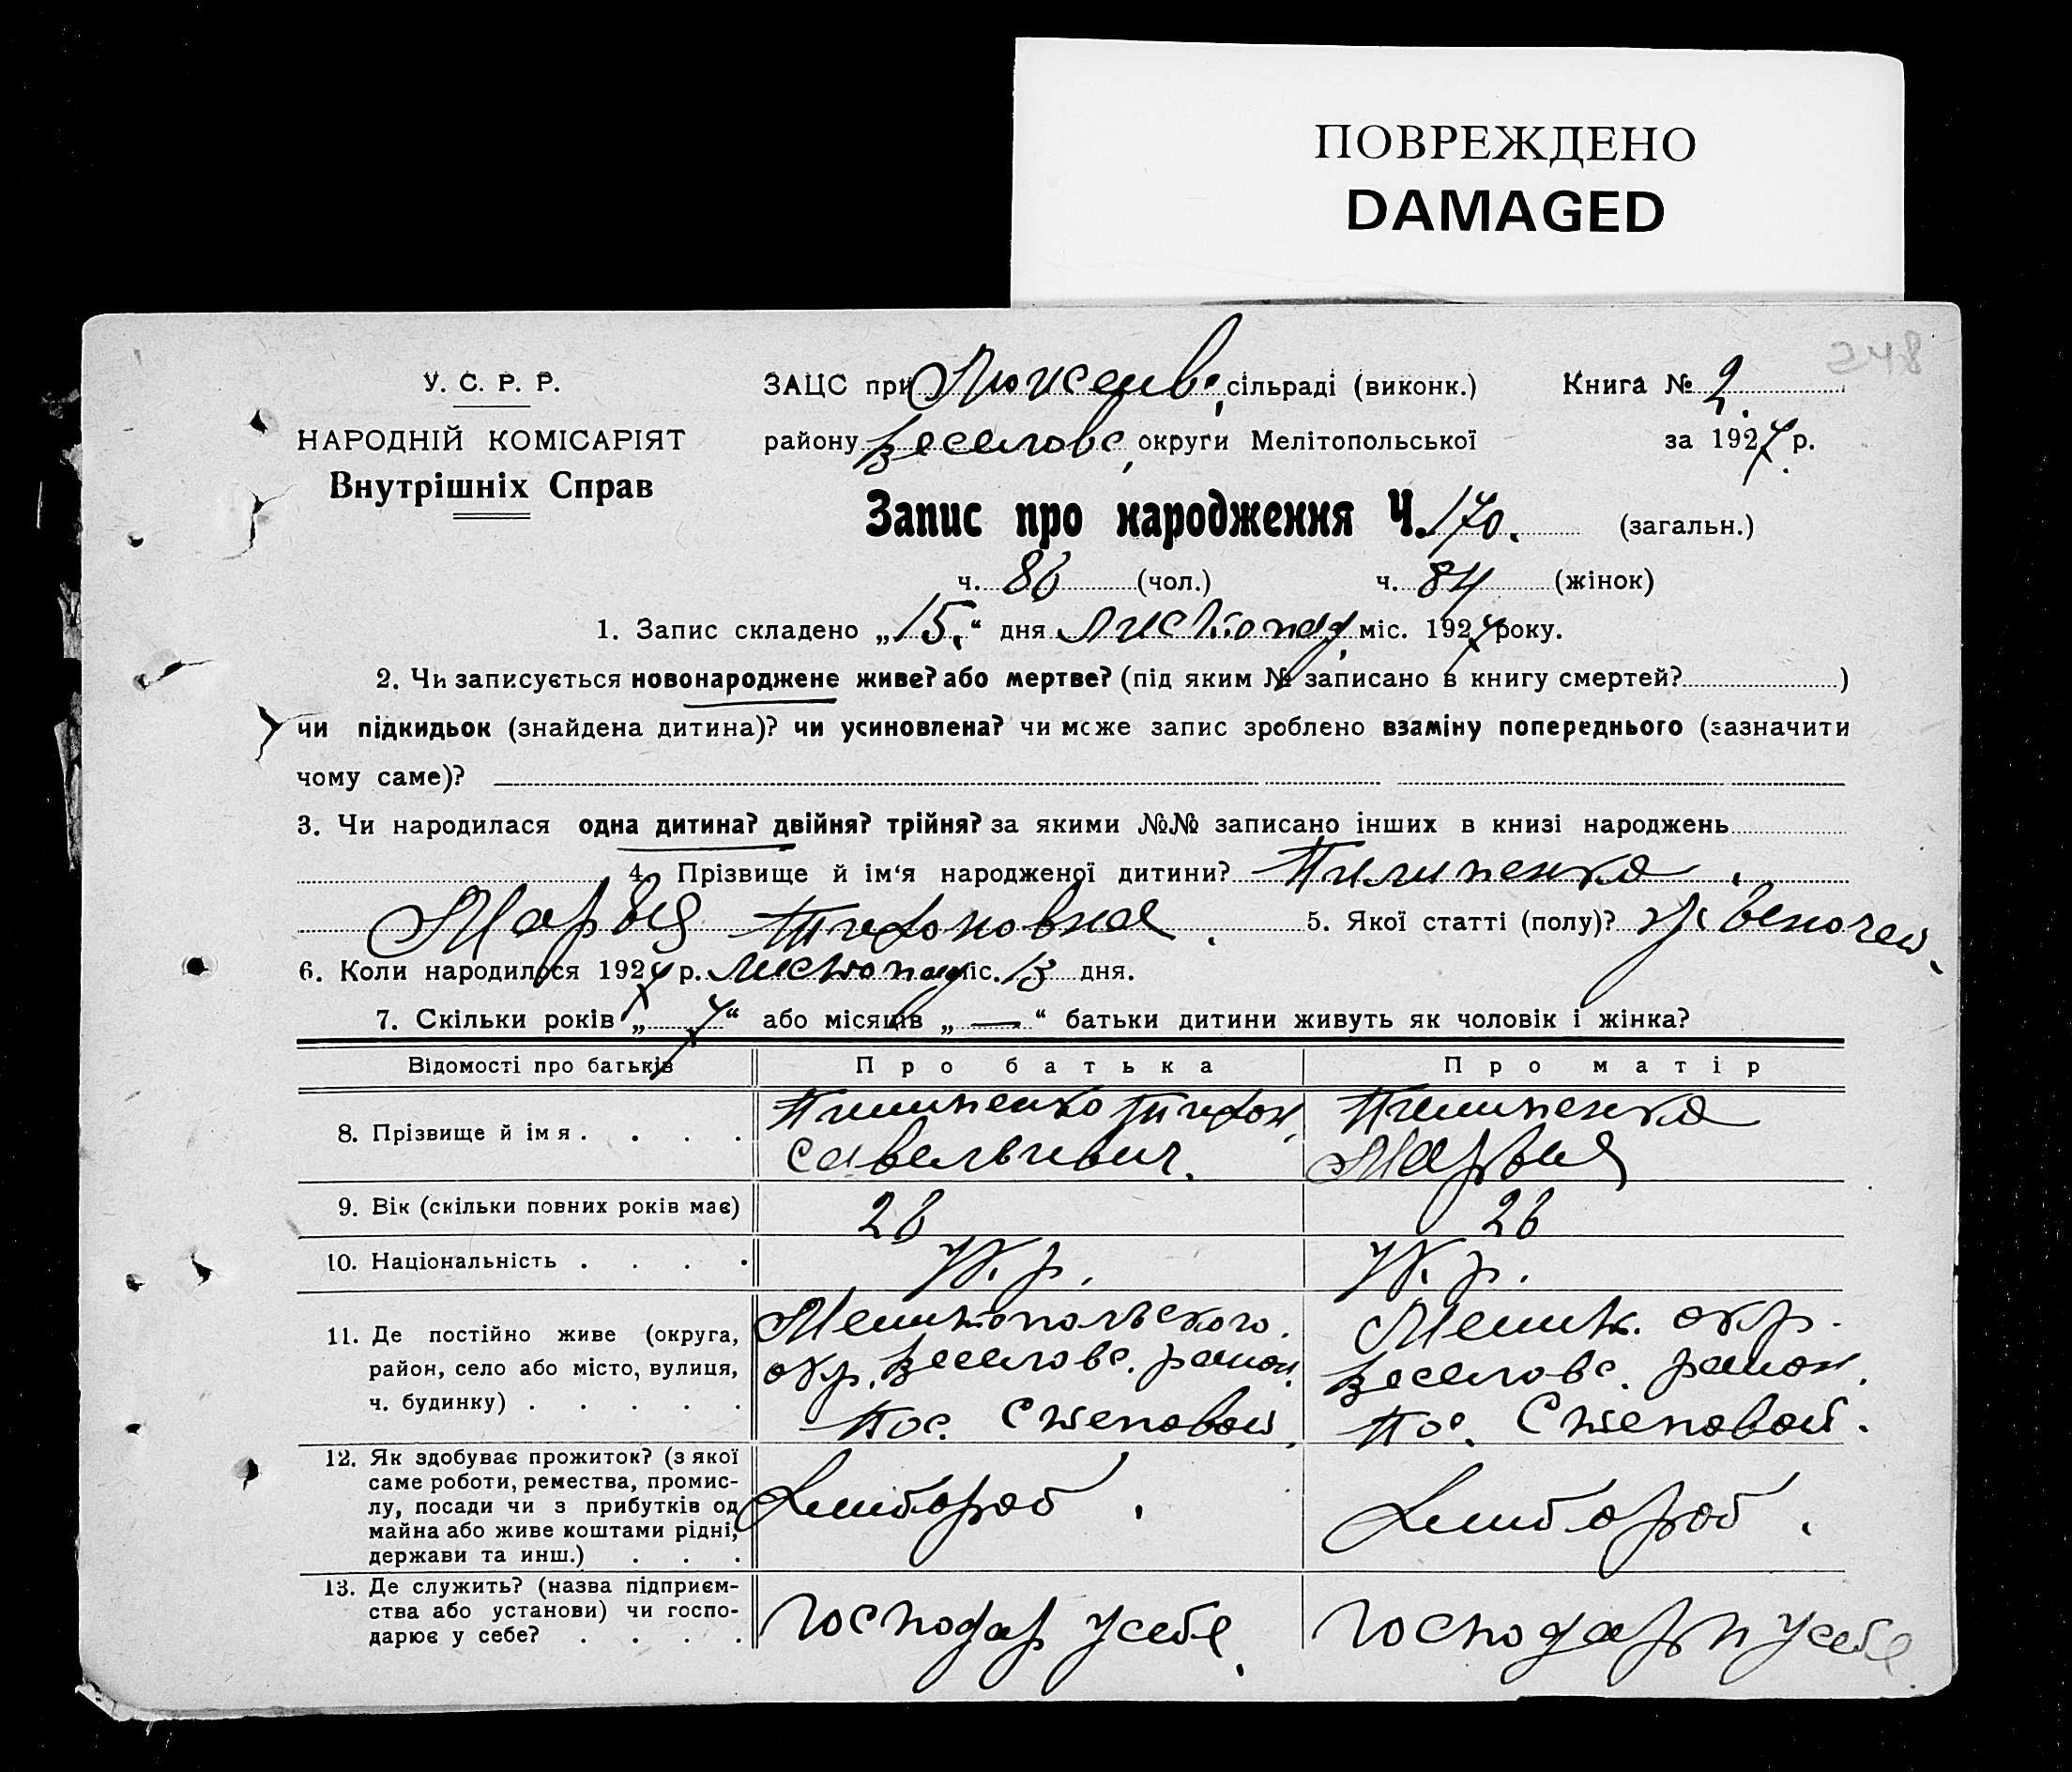 ПОВРЕЖДЕНО
DAMAGED
248
У. С. Р. Р.
НАРОДНІЙ КОМІСАРІЯТ
Внутрішніх Справ
ЗАЦС при сільраді (виконк.) Книга № 2.
району Веселовс, округи Мелітопольської за 1927 р.
Запис про народження Ч. 170. (загальн.)
ч. 86 (чол.) ч. 84 (жінок)
1. Запис складено „15.“ дня листопад, міс. 1927 року.
2. Чи записується новонароджене живе? або мертве? (під яким № записано в книгу смертей? )
чи підкидьок (знайдена дитина)? чи усиновлена? чи може запис зроблено взаміну попереднього (зазначити
чому саме)?
3. Чи народилася одна дитина? двійня? трійня? за якими №№ записано інших в книзі народжень
4. Прізвище й ім‘я народженої дитини? Пилипенка.
Марья Тихоновна. 5. Якої статті (полу)?
6. Коли народилося 1927 р. листопад міс. 13 дня.
7. Скільки років „7“ або місяців „—“ батьки дитини живуть як чоловік і жінка?
Відомості про батьків Про батька Про матір
8. Прізвище й імя . . . . Пилипенко Тихон Пилипенка
Савельевич. Марья
9. Вік (скільки повних років має) 26 26
10. Національність . . . . Ук.р. Ук.р.
11. Де постійно живе (округа, Мелитопольского. Мелит. окр.
район, село або місто, вулиця, окр. Веселовс. район. Веселовс. район.
ч. будинку) . . . . . Пос. Степовой. Пос. Степовой.
12. Як здобуває прожиток? (з якої
саме роботи, ремества, промис-
лу, посади чи з прибутків од Хлибороб. Хлибороб.
майна або живе коштами рідні,
держави та инш.) . . .
13. Де служить? (назва підприєм-
ства або установи) чи госпо- господар у себе. господари у себе
дарює у себе? . . . .